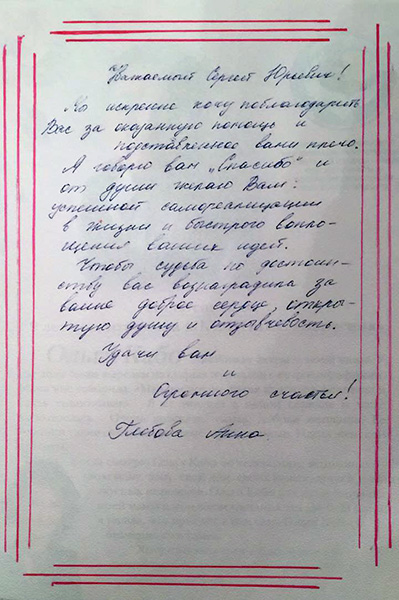 Уважаемый Сергей Юрьевич!
Я искренне хочу поблагодарить
Вас за оказанную помощь и
подставленное вами плечо.
Я говорю вам „Спасибо" и
от души желаю Вам:
успешной самореализации
в жизни и быстрого вопло-
щения ваших идей.
Чтобы судьба по достоин-
ству вас вознаградила за
ваше доброе сердце, откры-
тую душу и отзывчивость.
Удачи вам
и
Огромного счастья!
Глебова Анна.